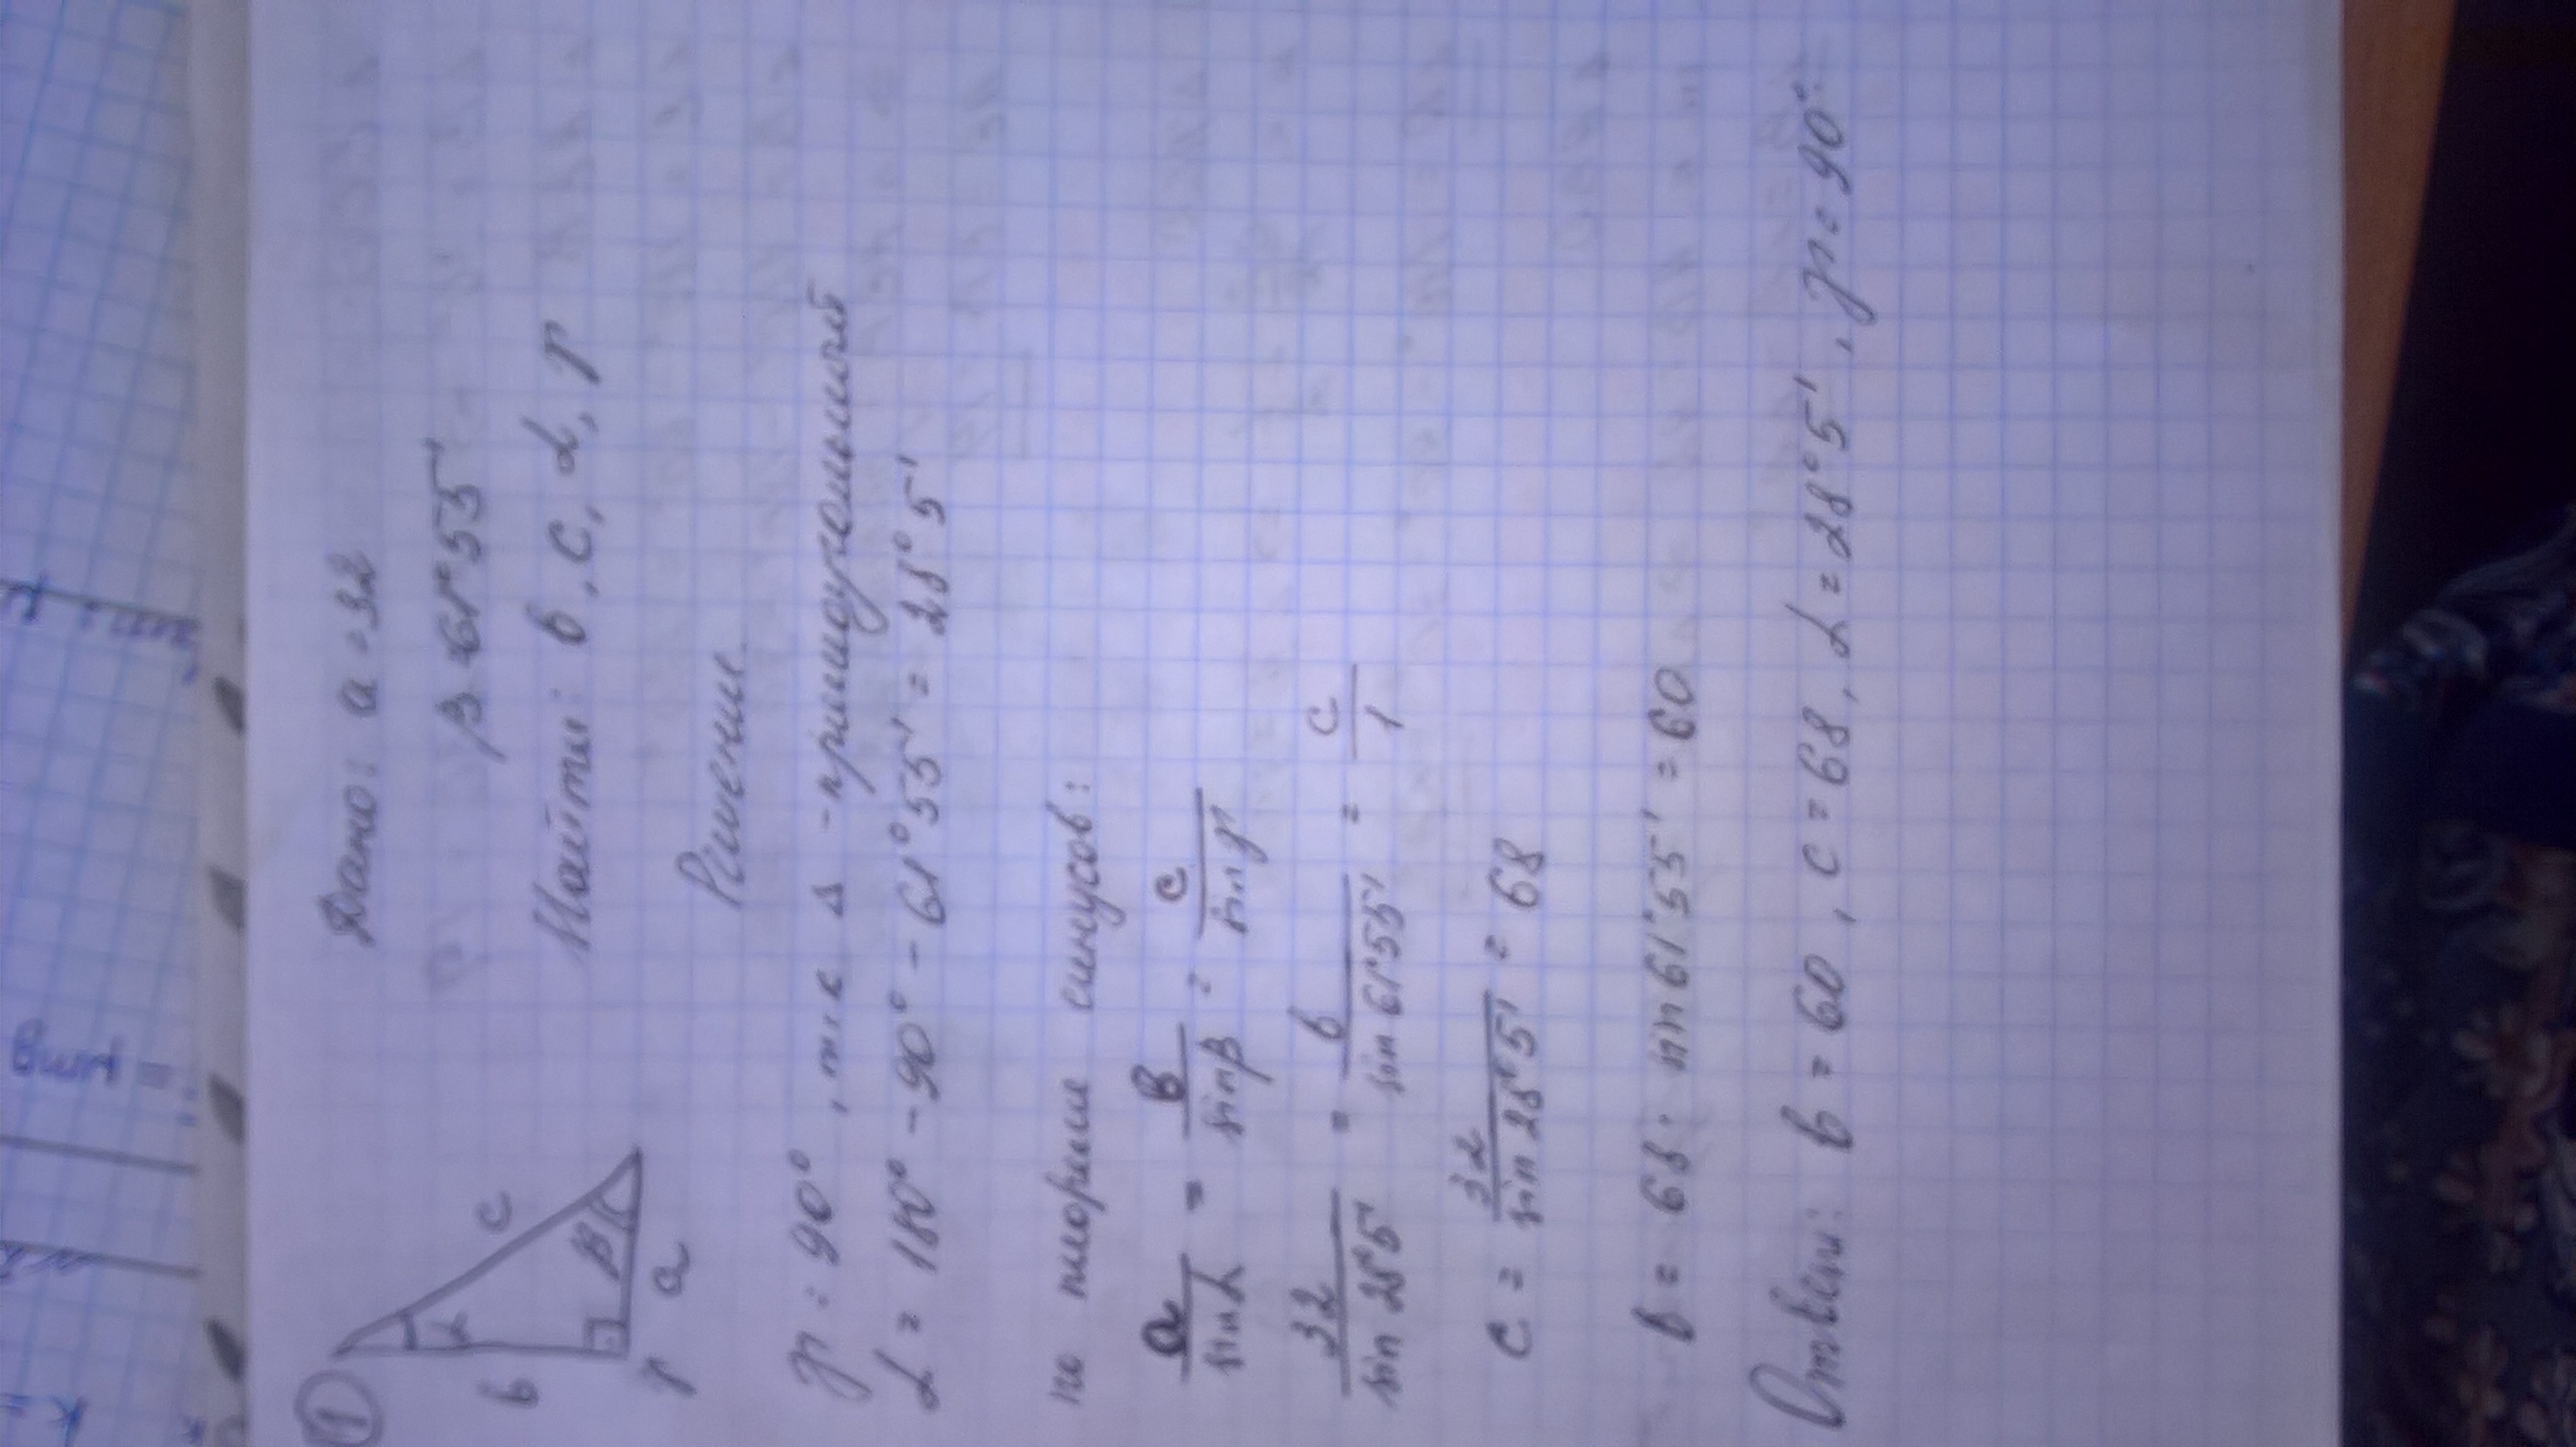 1
Дано: a = 32
β = 61°55'
Найти: b, c, α, γ
b c α β γ a
Решение
γ = 90°, т.к Δ - прямоугольный
α = 180° - 90° - 61°55' = 28°5'
по теореме синусов:
a/sinα = B/sinβ = c/sinγ
32/sin 28°5' = b/sin 61°55' = c/1
c = 32/sin 28°5' = 68
b = 68 · sin 61°55' = 60
Ответ: b = 60, c = 68, α = 28°5', γ = 90°.